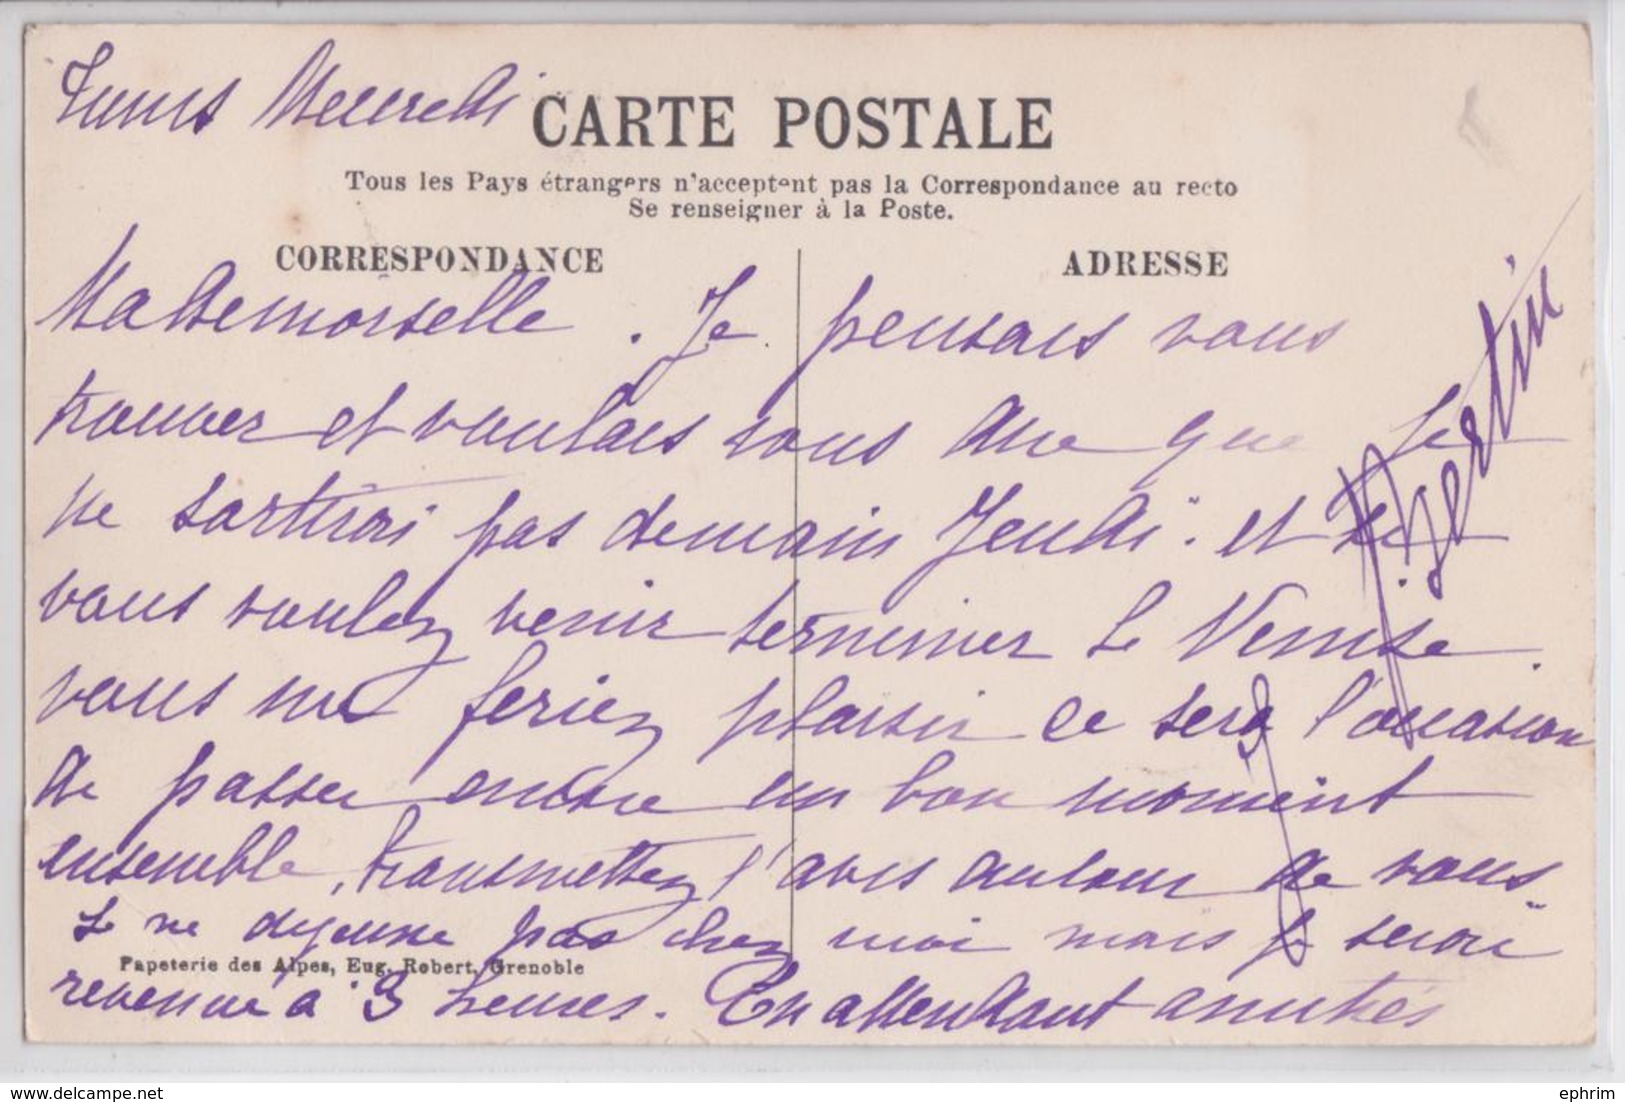 Tunis Mercredi
CARTE POSTALE
Tous les Pays étrangers n'acceptent pas la Correspondance au recto
Se renseigner à la Poste.
CORRESPONDANCE
ADRESSE
Mademoiselle. Je pensais vous
trouver et voulais vous dire que je
ne sortirai pas demain Jeudi. et si
vous voulez venir terminer le Venise
vous me feriez plaisir ce sera l'occasion
de passer encore un bon moment
ensemble, transmettez l'avis autour de vous
Je ne dejeune pas chez moi mais je serai
Papeterie des Alpes, Eug. Robert, Grenoble
revenue à 3 heures. En attendant amitiés
Bertin
delcampe.net
ephrim